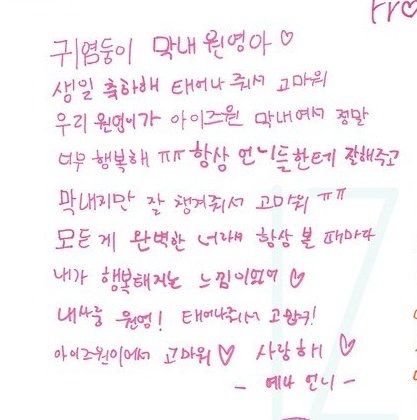 Fr
귀염둥이 막내 원영아♡
생일 축하해 태어나 줘서 고마워
우리 원영이가 아이즈원 막내여서 정말
너무 행복해 ㅠㅠ 항상 언니들한테 잘해주고
막내지만 잘 챙겨줘서 고마워 ㅠㅠ
모든 게 완벽한 너라서 항상 볼 때마다
내가 행복해지는 느낌이있어 ♡
내사랑 원영! 태어나줘서 고맙구!
아이즈원이여서 고마워♡ 사랑해 ♡
- 예나 언니 -